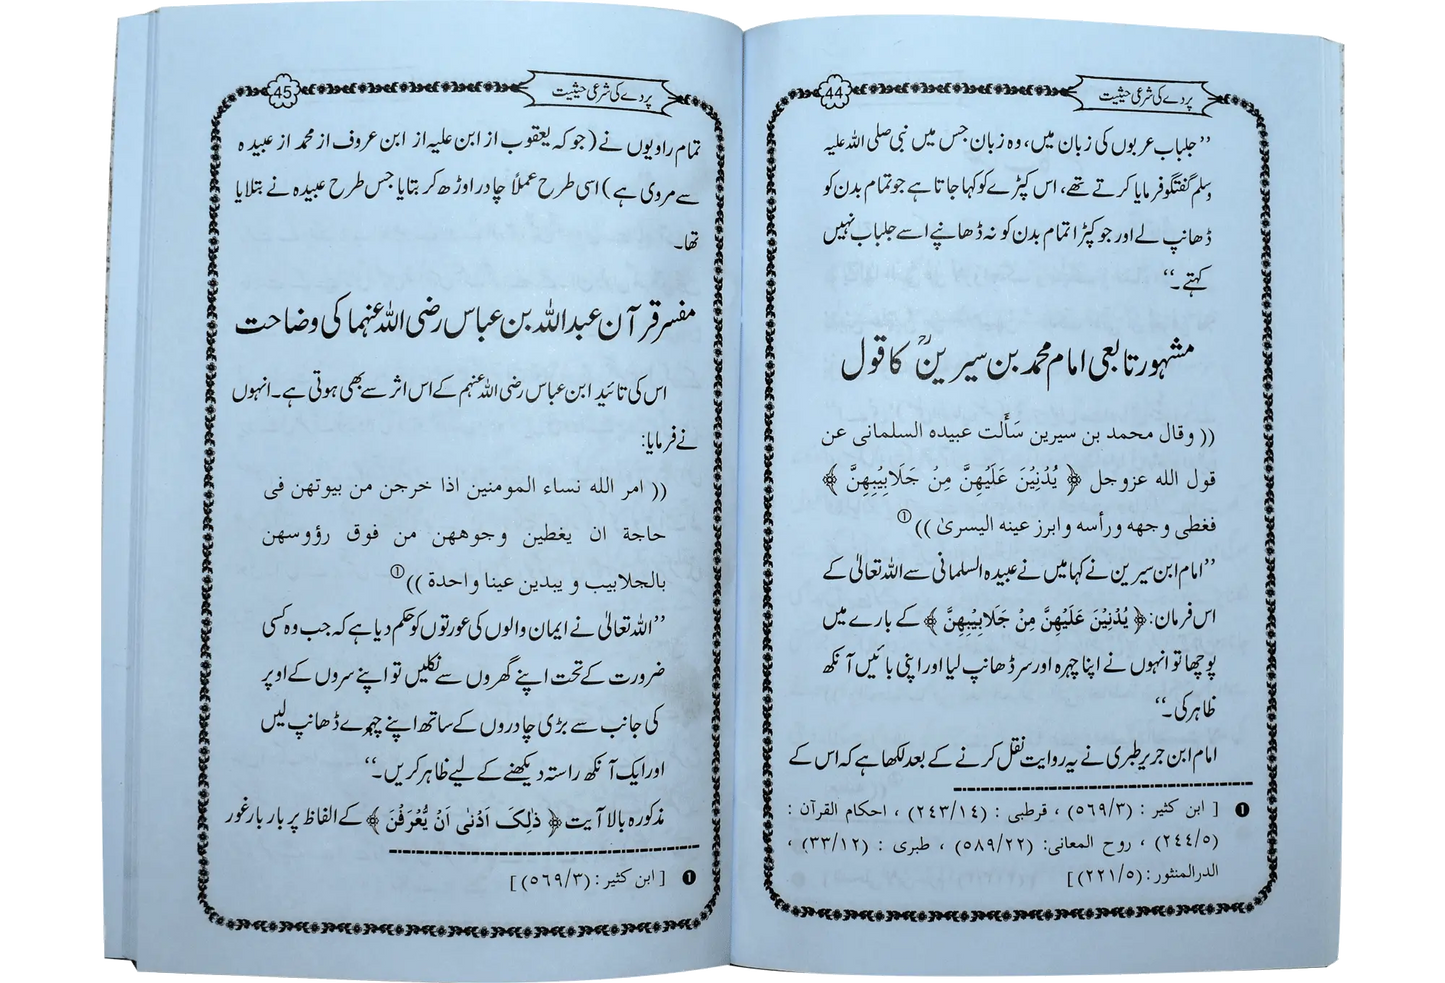 پردے کی شرعی حیثیت
44
’’جلباب عربوں کی زبان میں، وہ زبان جس میں نبی صلی اللہ علیہ
وسلم گفتگو فرمایا کرتے تھے، اس کپڑے کو کہا جاتا ہے جو تمام بدن کو
ڈھانپ لے اور جو کپڑا تمام بدن کو نہ ڈھانپے اسے جلباب نہیں
کہتے۔‘‘
مشہور تابعی امام محمد بن سیرینؒ کا قول
(( وقال محمد بن سيرين سَأَلت عبيده السلمانى عن
قول الله عزوجل ﴿ يُدْنِيْنَ عَلَيْهِنَّ مِنْ جَلَابِيْبِهِنَّ ﴾
فغطى وجهه ورأسه وابرز عينه اليسرىٰ ))①
’’امام ابن سیرین نے کہا میں نے عبیدہ السلمانی سے اللہ تعالیٰ کے
اس فرمان: ﴿ يُدْنِيْنَ عَلَيْهِنَّ مِنْ جَلَابِيْبِهِنَّ ﴾ کے بارے میں
پوچھا تو انہوں نے اپنا چہرہ اور سر ڈھانپ لیا اور اپنی بائیں آنکھ
ظاہر کی۔‘‘
امام ابن جریر طبری نے یہ روایت نقل کرنے کے بعد لکھا ہے کہ اس کے
❶ [ ابن کثیر : (٥٦٩/٣) ، قرطبی : (٢٤٣/١٤) ، احکام القرآن :
(٢٤٤/٥) ، روح المعانی: (٥٨٩/٢٢) ، طبری : (٣٣/١٢) ،
الدرالمنثور: (٢٢١/٥)]
پردے کی شرعی حیثیت
45
تمام راویوں نے (جو کہ یعقوب از ابن علیہ از ابن عروف از محمد از عبیدہ
سے مروی ہے) اسی طرح عملاً چادر اوڑھ کر بتایا جس طرح عبیدہ نے بتلایا
تھا۔
مفسر قرآن عبداللہ بن عباس رضی اللہ عنہما کی وضاحت
اس کی تائید ابن عباس رضی اللہ عنہم کے اس اثر سے بھی ہوتی ہے۔ انہوں
نے فرمایا:
(( امر الله نساء المومنين اذا خرجن من بيوتهن فى
حاجة ان يغطين وجوههن من فوق رؤوسهن
بالجلابيب و يبدين عينا واحدة ))①
’’اللہ تعالیٰ نے ایمان والوں کی عورتوں کو حکم دیا ہے کہ جب وہ کسی
ضرورت کے تحت اپنے گھروں سے نکلیں تو اپنے سروں کے اوپر
کی جانب سے بڑی چادروں کے ساتھ اپنے چہرے ڈھانپ لیں
اور ایک آنکھ راستہ دیکھنے کے لیے ظاہر کریں۔‘‘
مذکورہ بالا آیت ﴿ ذٰلِكَ اَدْنٰى اَنْ يُّعْرَفْنَ ﴾ کے الفاظ پر بار بار غور
❶ [ ابن کثیر : (٥٦٩/٣)]